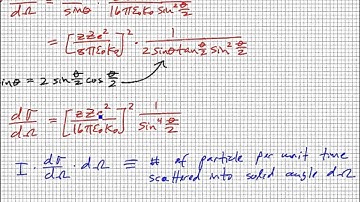 dσ/dΩ = /sinθ · 16πε₀K₀ sin² θ/2
= [zZe²/8πε₀K₀]² · 1/(2 sinθ tan θ/2 sin² θ/2)
sinθ = 2 sin θ/2 cos θ/2
dσ/dΩ = [zZe²/16πε₀K₀]² 1/sin⁴ θ/2
I · dσ/dΩ · dΩ ≡ # of particle per unit time
scattered into solid angle dΩ